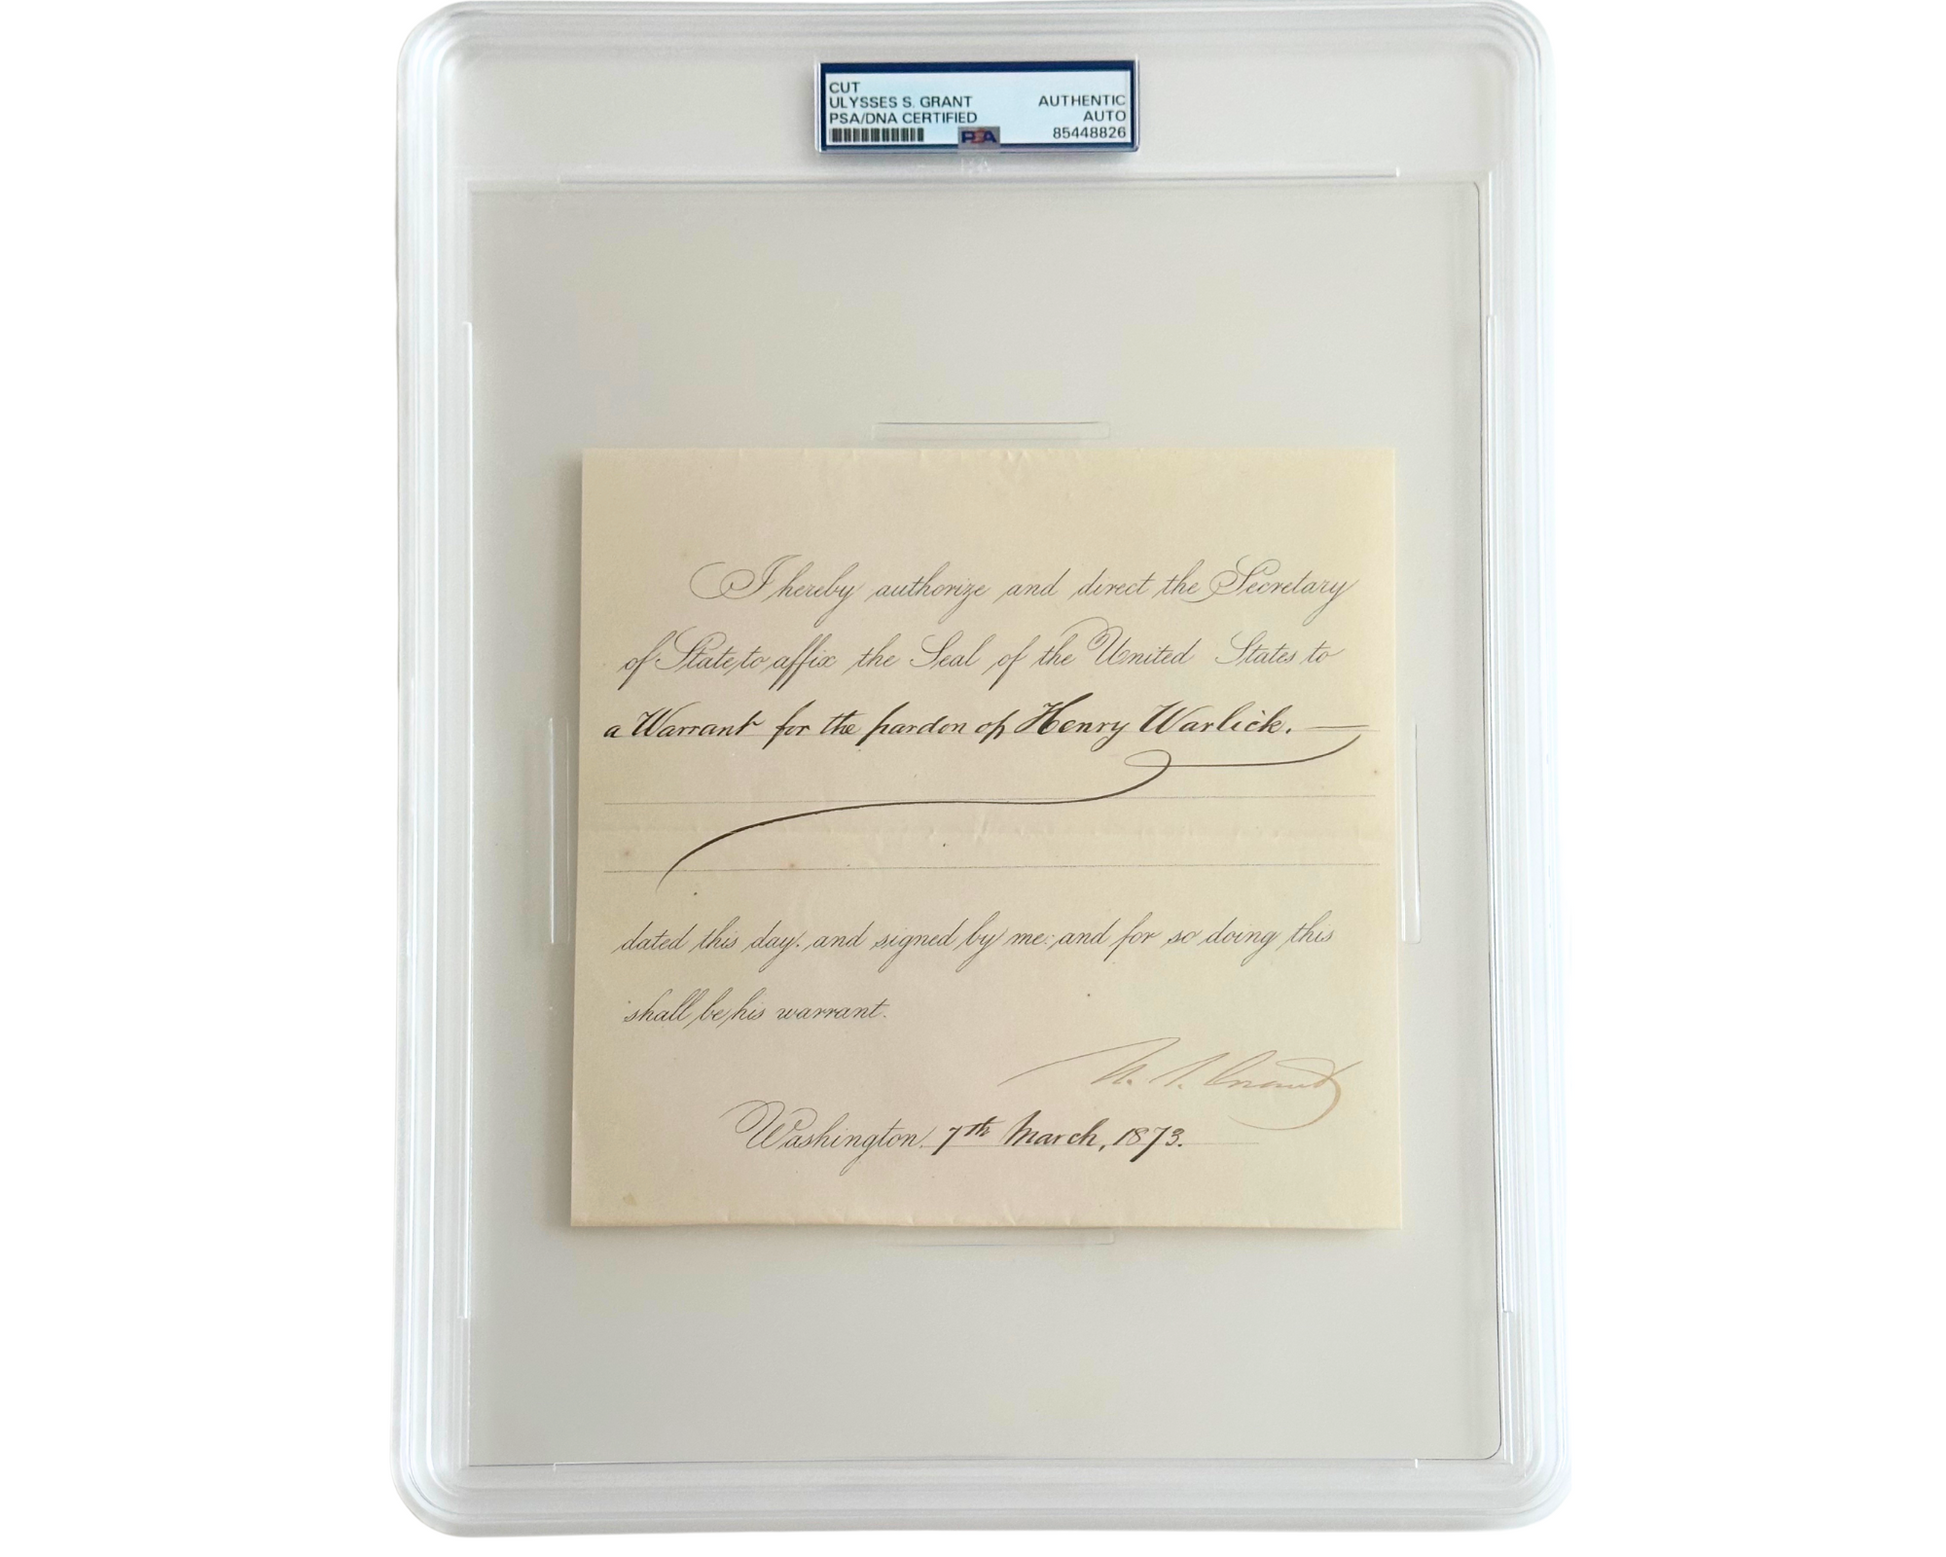 CUT
ULYSSES S. GRANT
PSA/DNA CERTIFIED
AUTHENTIC
AUTO
85448826
PSA
I hereby authorize and direct the Secretary
of State to affix the Seal of the United States to
a Warrant for the pardon of Henry Warlick.
dated this day, and signed by me: and for so doing this
shall be his warrant.
U. S. Grant
Washington, 7th March, 1873.